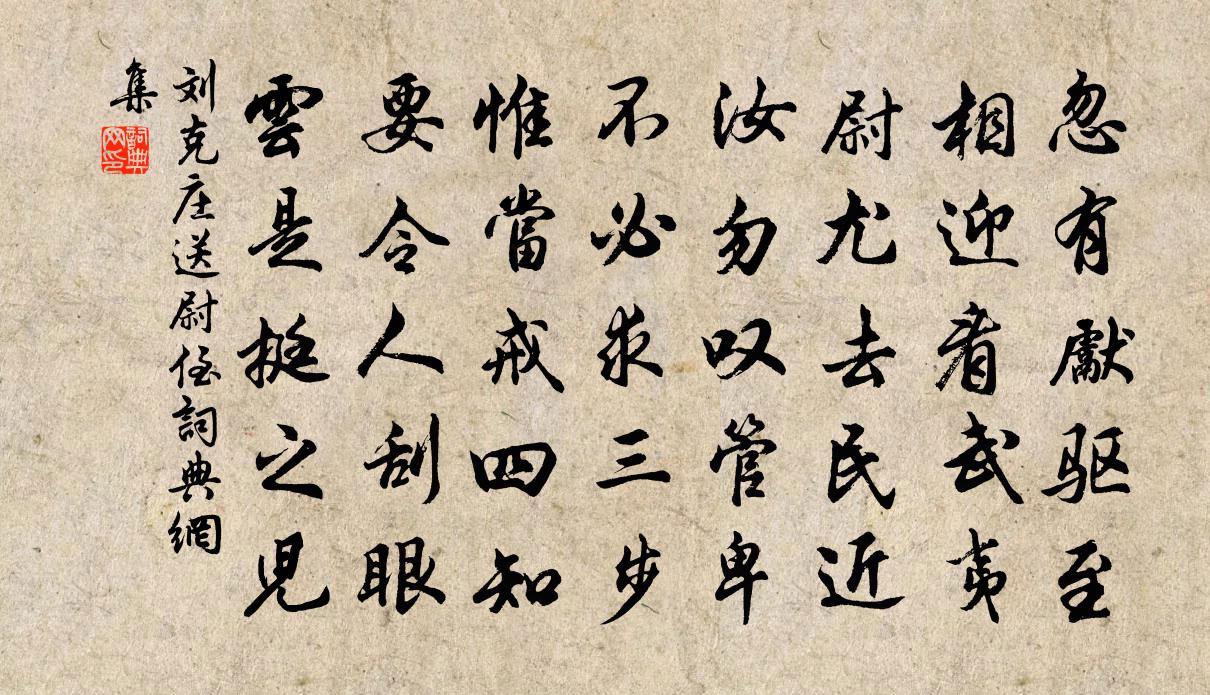 忽有獻驱至
相迎看武夷
尉尤去民近
汝勿叹管卑
不必求三步
惟當戒四知
要令人刮眼
雲是挺之児
刘克庄送尉侄詞典網
集
詞典网印